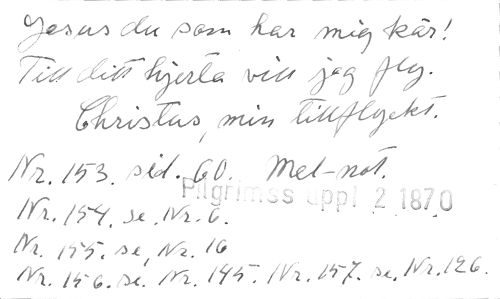 Jesus du som har mig kär!
Till ditt hjerta vill jag fly.
Christus, min tillflygckt.
Nr. 153. sid. 60. Mel-not.
Pilgrimss uppl 2 1870
Nr. 154. se. Nr. 6.
Nr. 155. se, Nr. 16
Nr. 156. se. Nr. 145. Nr. 157. se, Nr. 126.